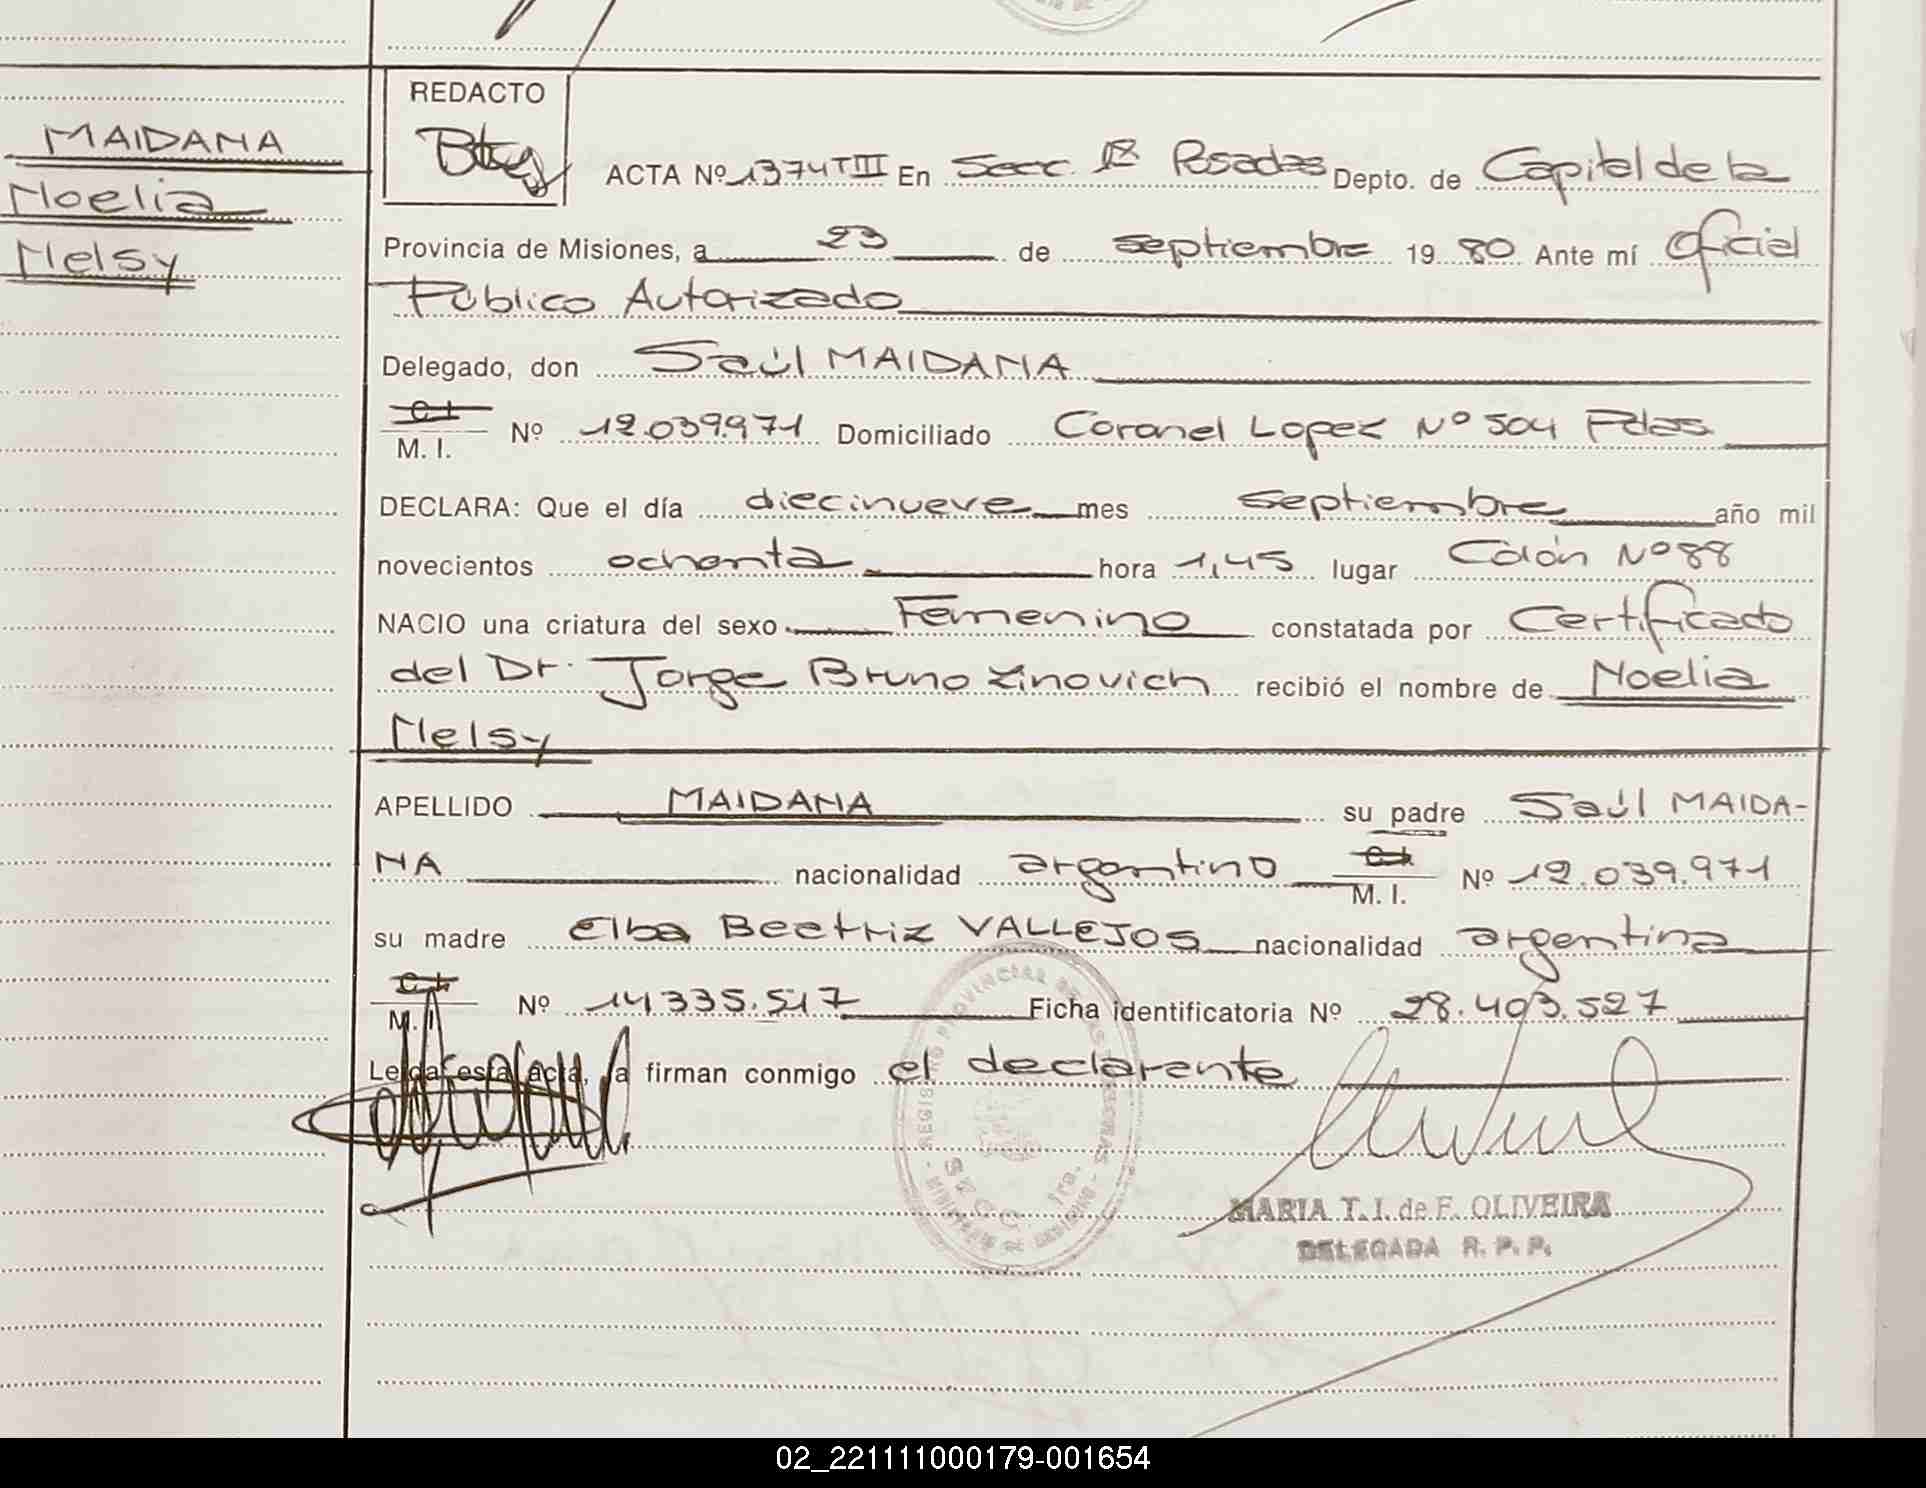 MAIDANA
Noelia
Nelsy
REDACTO
ACTA Nº 1374 T III En Secc. 1ª Posadas Depto. de Capital de la
Provincia de Misiones, a 23 de septiembre 1980 Ante mí Oficial
Público Autorizado
Delegado, don Saúl MAIDANA
C.I.
M. I. Nº 12.039.971 Domiciliado Coronel Lopez Nº 504 Pdas.
DECLARA: Que el día diecinueve mes septiembre año mil
novecientos ochenta hora 1,45 lugar Colón Nº 88
NACIO una criatura del sexo Femenino constatada por Certificado
del Dr. Jorge Bruno Zinovich recibió el nombre de Noelia
Nelsy
APELLIDO MAIDANA su padre Saúl MAIDA-
NA nacionalidad argentino C.I. M. I. Nº 12.039.971
su madre Elba Beatriz VALLEJOS nacionalidad argentina
C.I.
M. I. Nº 14.335.517 Ficha identificatoria Nº 28.403.527
Leída esta acta, la firman conmigo el declarante
REGISTRO PROVINCIAL DE LAS PERSONAS
SECC. 1ra.
MINISTERIO DE GOBIERNO
MARIA T. I. de F. OLIVEIRA
DELEGADA R. P. P.
02_221111000179-001654